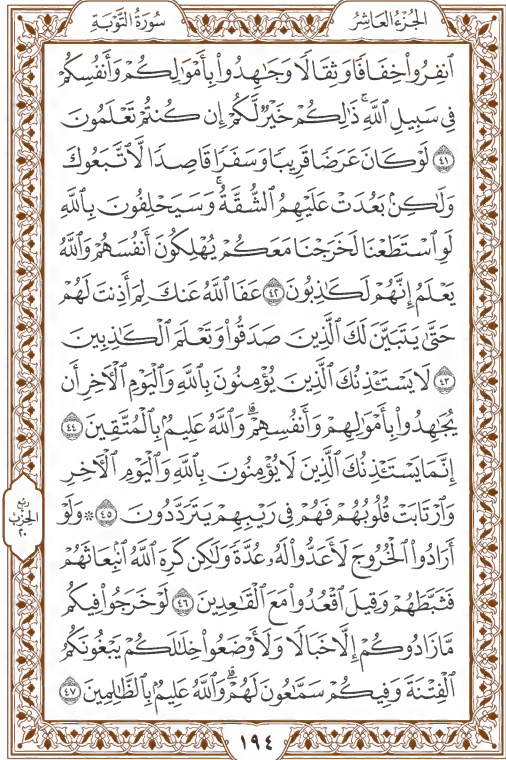 الجزء العاشر
سورة التوبة
ٱنفِرُواْ خِفَافٗا وَثِقَالٗا وَجَٰهِدُواْ بِأَمۡوَٰلِكُمۡ وَأَنفُسِكُمۡ
فِي سَبِيلِ ٱللَّهِۚ ذَٰلِكُمۡ خَيۡرٞ لَّكُمۡ إِن كُنتُمۡ تَعۡلَمُونَ
٤١ لَوۡ كَانَ عَرَضٗا قَرِيبٗا وَسَفَرٗا قَاصِدٗا لَّٱتَّبَعُوكَ
وَلَٰكِنۢ بَعُدَتۡ عَلَيۡهِمُ ٱلشُّقَّةُۚ وَسَيَحۡلِفُونَ بِٱللَّهِ
لَوِ ٱسۡتَطَعۡنَا لَخَرَجۡنَا مَعَكُمۡ يُهۡلِكُونَ أَنفُسَهُمۡ وَٱللَّهُ
يَعۡلَمُ إِنَّهُمۡ لَكَٰذِبُونَ ٤٢ عَفَا ٱللَّهُ عَنكَ لِمَ أَذِنتَ لَهُمۡ
حَتَّىٰ يَتَبَيَّنَ لَكَ ٱلَّذِينَ صَدَقُواْ وَتَعۡلَمَ ٱلۡكَٰذِبِينَ
٤٣ لَا يَسۡتَـٔۡذِنُكَ ٱلَّذِينَ يُؤۡمِنُونَ بِٱللَّهِ وَٱلۡيَوۡمِ ٱلۡأٓخِرِ أَن
يُجَٰهِدُواْ بِأَمۡوَٰلِهِمۡ وَأَنفُسِهِمۡۗ وَٱللَّهُ عَلِيمُۢ بِٱلۡمُتَّقِينَ ٤٤
إِنَّمَا يَسۡتَـٔۡذِنُكَ ٱلَّذِينَ لَا يُؤۡمِنُونَ بِٱللَّهِ وَٱلۡيَوۡمِ ٱلۡأٓخِرِ
وَٱرۡتَابَتۡ قُلُوبُهُمۡ فَهُمۡ فِي رَيۡبِهِمۡ يَتَرَدَّدُونَ ٤٥ ۞ وَلَوۡ
أَرَادُواْ ٱلۡخُرُوجَ لَأَعَدُّواْ لَهُۥ عُدَّةٗ وَلَٰكِن كَرِهَ ٱللَّهُ ٱنۢبِعَاثَهُمۡ
فَثَبَّطَهُمۡ وَقِيلَ ٱقۡعُدُواْ مَعَ ٱلۡقَٰعِدِينَ ٤٦ لَوۡ خَرَجُواْ فِيكُم
مَّا زَادُوكُمۡ إِلَّا خَبَالٗا وَلَأَوۡضَعُواْ خِلَٰلَكُمۡ يَبۡغُونَكُمُ
ٱلۡفِتۡنَةَ وَفِيكُمۡ سَمَّٰعُونَ لَهُمۡۗ وَٱللَّهُ عَلِيمُۢ بِٱلظَّٰلِمِينَ ٤٧
ربع
الحزب
٢٠
١٩٤